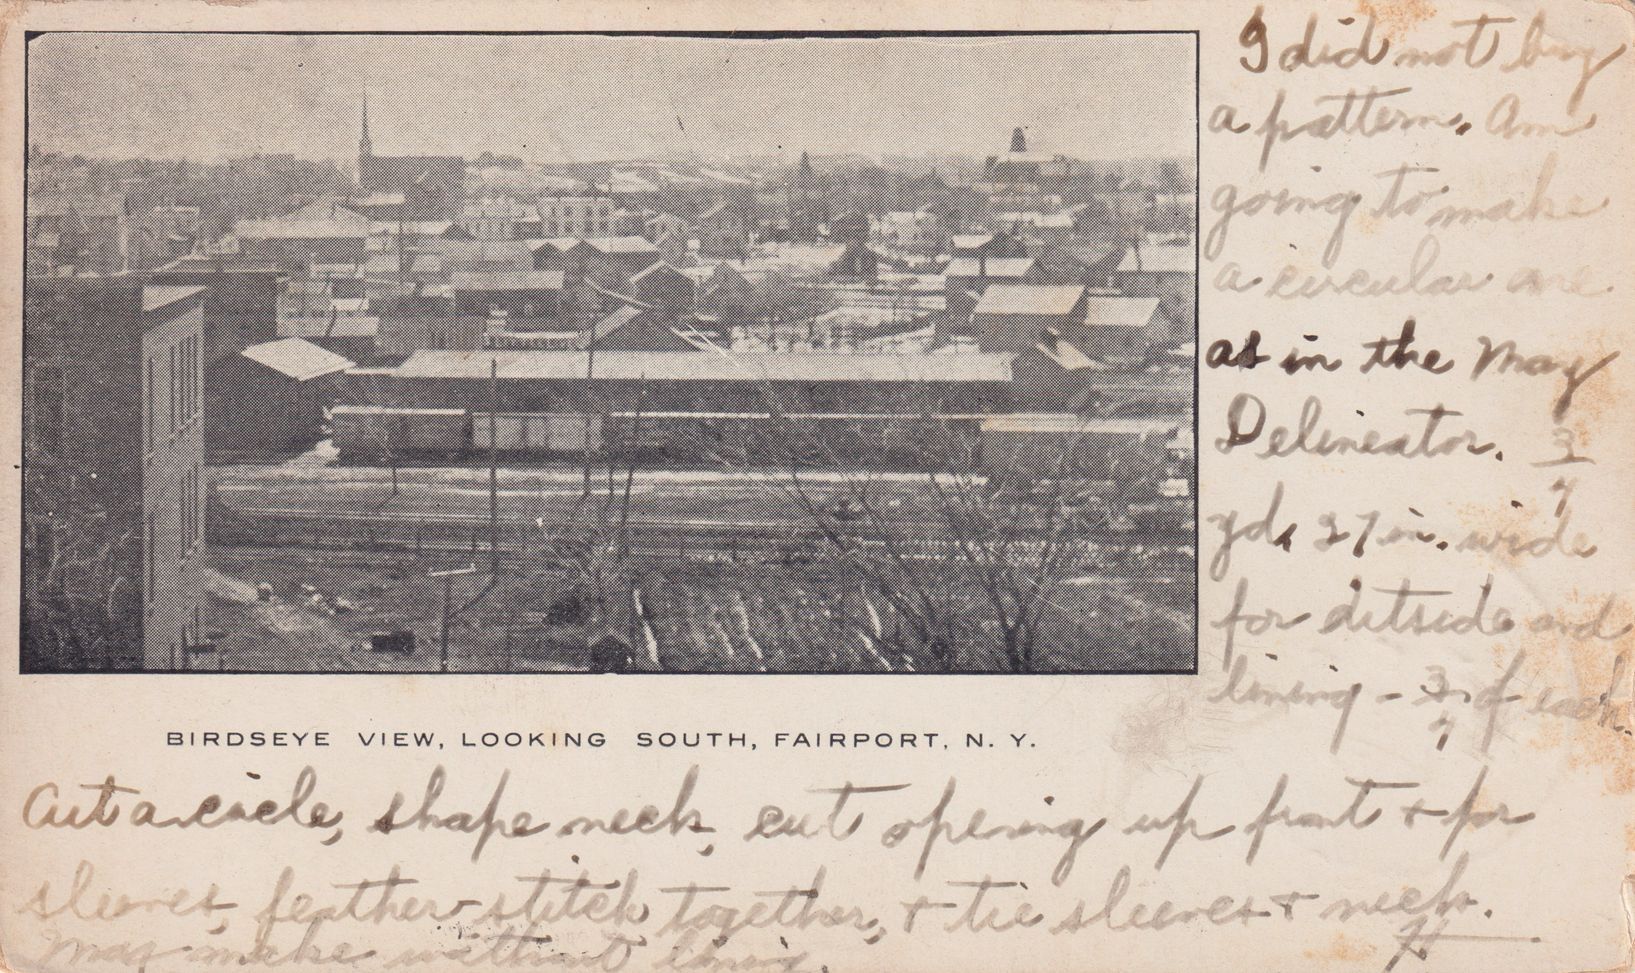 I did not buy
a pattern. Am
going to make
a circular one
as in the May
Delineator. 3/4
yd. 27 in. wide
for outside and
lining - 3/4 of each.
BIRDSEYE VIEW, LOOKING SOUTH, FAIRPORT, N. Y.
Cut a circle, shape neck, cut opening up front + for
sleeves, feather-stitch together, + tie sleeves + neck.
May make without lining.
H